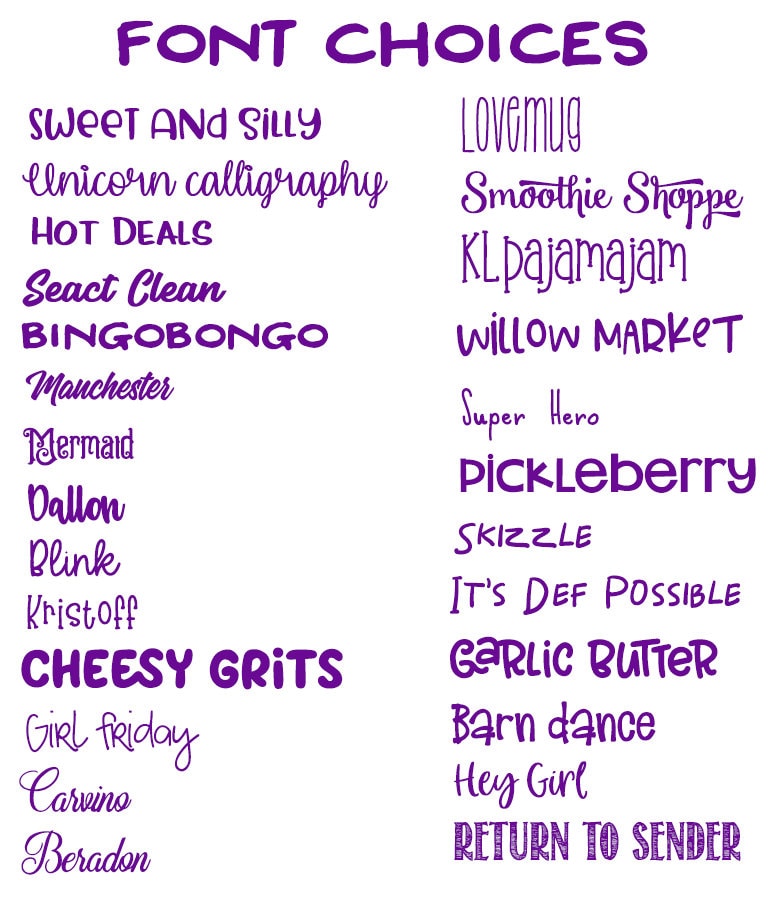 FONT CHOICES
Sweet AND Silly
Unicorn calligraphy
HOT DEALS
Seact Clean
BINGOBONGO
Manchester
Mermaid
Dallon
Blink
Kristoff
CHEESY GRITS
Girl friday
Carvino
Beradon
Lovemug
Smoothie Shoppe
KLpajamajam
Willow MARKET
Super Hero
PickLeberry
SKIZZLE
IT'S DEF POSSIBLE
GaRLIC BUTTeR
Barn dance
Hey Girl
RETURN TO SENDER